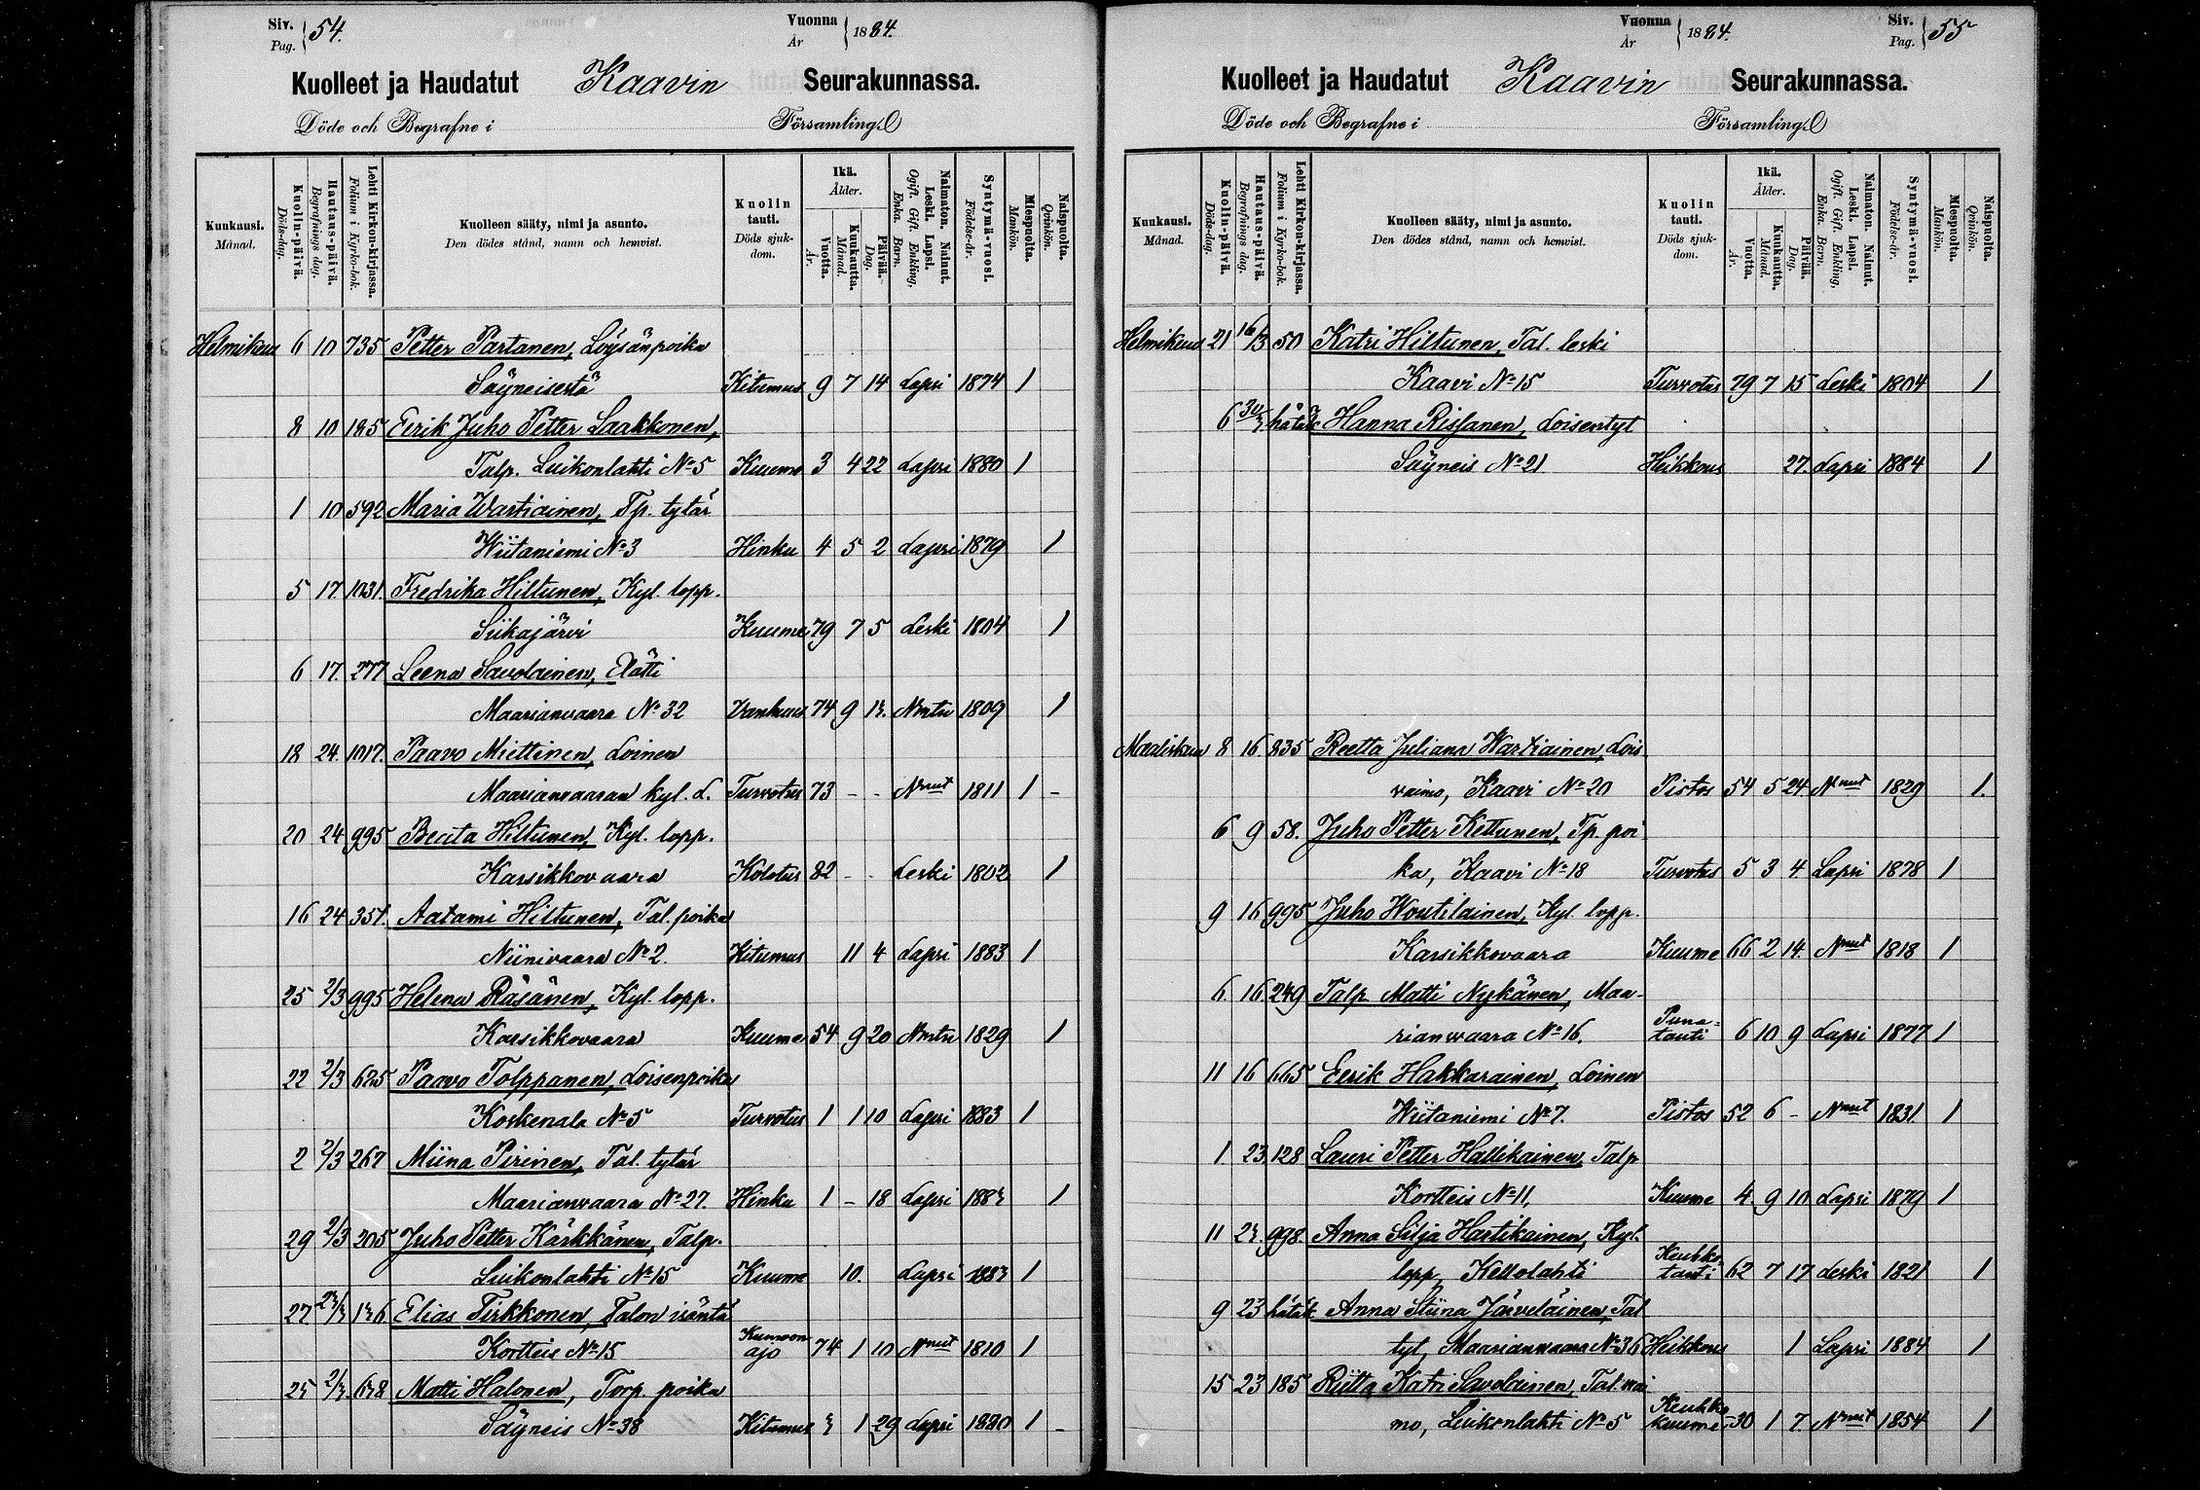 Siv. Pag. 54. Vuonna År 1884.
Kuolleet ja Haudatut Kaavin Seurakunnassa.
Döde och Begrafne i Församling.
Kuukausi. Månad. Kuolin-päivä. Döds-dag. Hautaus-päivä. Begrafnings dag. Lehti Kirkon-kirjassa. Folium i Kyrko-bok. Kuolleen sääty, nimi ja asunto. Den dödes stånd, namn och hemvist. Kuolin tauti. Döds sjuk-dom. Ikä. Ålder. Vuotta. År. Kuukautta. Månad. Päivää. Dag. Naimaton. Nainut. Leski. Lapsi. Ogift. Gift. Enkling, Enka. Barn. Syntymä-vuosi. Födelse-år. Miespuolta. Mankön. Naispuolta. Qvinkön.
Helmikuu 6 10 735 Petter Partanen, Löysänpoika
Säyneisestä Kitumus 9 7 14 Lapsi 1874 1
8 10 185 Eerik Juho Petter Laakkonen,
Talp. Luikonlahti No 5 Kuume 3 4 22 Lapsi 1880 1
1 10 592 Maria Wartiainen, Tp. tytär
Wiitaniemi No 3 Hinku 4 5 2 Lapsi 1879 1
5 17. 1031. Fredrika Hiltunen, Kyl. lopp.
Siikajärvi Kuume 79 7 5 Leski 1804 1
6 17. 277 Leena Savolainen, Elätti
Maarianvaara No 32 Vanhuus 74 9 13. Nmtn 1809 1
18 24. 1017. Paavo Miettinen, Loinen
Maarianvaaran kyl. L. Turvotus 73 - - Nnut 1811 1 -
20 24 995 Beata Hiltunen, Kyl. lopp.
Karsikkovaara Kolotus 82 - - Leski 1802 1
16 24 351. Aatami Hiltunen, Tal. poika
Niinivaara No 2. Kitumus 11 4 Lapsi 1883 1
25 2/3 995 Helena Räsänen, Kyl. lopp.
Karsikkovaara Kuume 54 9 20 Nmtn 1829 1
22 2/3 625 Paavo Tolppanen, Loisenpoika
Koskenala No 5 Turvotus 1 1 10 Lapsi 1883 1
2 2/3 267 Miina Pirinen, Tal. tytär
Maarianvaara No 27. Hinku 1 - 18 Lapsi 1883 1
29 2/3 205 Juho Petter Kärkkänen, Talp.
Luikonlahti No 15 Kuume 10. Lapsi 1883 1
27 136 Elias Tirkkonen, Talon isäntä
Kortteis No 15 Kumoon ajo 74 1 10 Nnut 1810 1
25 2/3 638 Matti Halonen, Torp. poika
Säyneis No 38 Kitumus 3 1 29 Lapsi 1880 1 -
Vuonna År 1884. Siv. Pag. 55
Kuolleet ja Haudatut Kaavin Seurakunnassa.
Döde och Begrafne i Församling.
Kuukausi. Månad. Kuolin-päivä. Döds-dag. Hautaus-päivä. Begrafnings dag. Lehti Kirkon-kirjassa. Folium i Kyrko-bok. Kuolleen sääty, nimi ja asunto. Den dödes stånd, namn och hemvist. Kuolin tauti. Döds sjuk-dom. Ikä. Ålder. Vuotta. År. Kuukautta. Månad. Päivää. Dag. Naimaton. Nainut. Leski. Lapsi. Ogift. Gift. Enkling, Enka. Barn. Syntymä-vuosi. Födelse-år. Miespuolta. Mankön. Naispuolta. Qvinkön.
Helmikuu 21 16/3 50 Katri Hiltunen, Tal. leski
Kaavi No 15 Turvotus 79 7 15 Leski 1804 1
6 30/3 hätäk Hanna Rissanen, Loisentyt
Säyneis No 21 Heikkous 27. Lapsi 1884 1
Maaliskuu 8 16. 835 Reetta Juliana Wartiainen, Lois
vaimo, Kaavi No 20 Pistos 54 5 24. Nnut 1829 1.
6 9 58. Juho Petter Kettunen, Tp. poi
ka, Kaavi No 18 Turvotus 5 3 4 Lapsi 1878 1
9 16 995 Juho Woutilainen, Kyl. lopp.
Karsikkovaara Kuume 66 2 14. Nnut 1818 1
6. 16 249 Talp. Matti Nykänen, Maa-
rianvaara No 16. Puna-tauti 6 10 9 Lapsi 1877 1
11 16 665 Eerik Hakkarainen, Loinen
Wiitaniemi No 7. Pistos 52 6 - Nnut 1831. 1
1. 23. 128 Lauri Petter Hallikainen, Talp
Kortteis No 11, Kuume 4. 9 10 Lapsi 1879 1
11 23. 998. Anna Silja Hartikainen, Kyl.
lopp, Kellolahti Keuhko tauti 62 7 17 Leski 1821 1
9 23 hätäk. Anna Stiina Järveläinen, Tal
tyt, Maarianvaara No 36 Heikkous 1 Lapsi 1884 1
15 23 185 Riitta Katri Savolainen, Tal. vai
mo, Luikonlahti No 5 Keuhko kuume 30 1 7. Nnut 1854 1